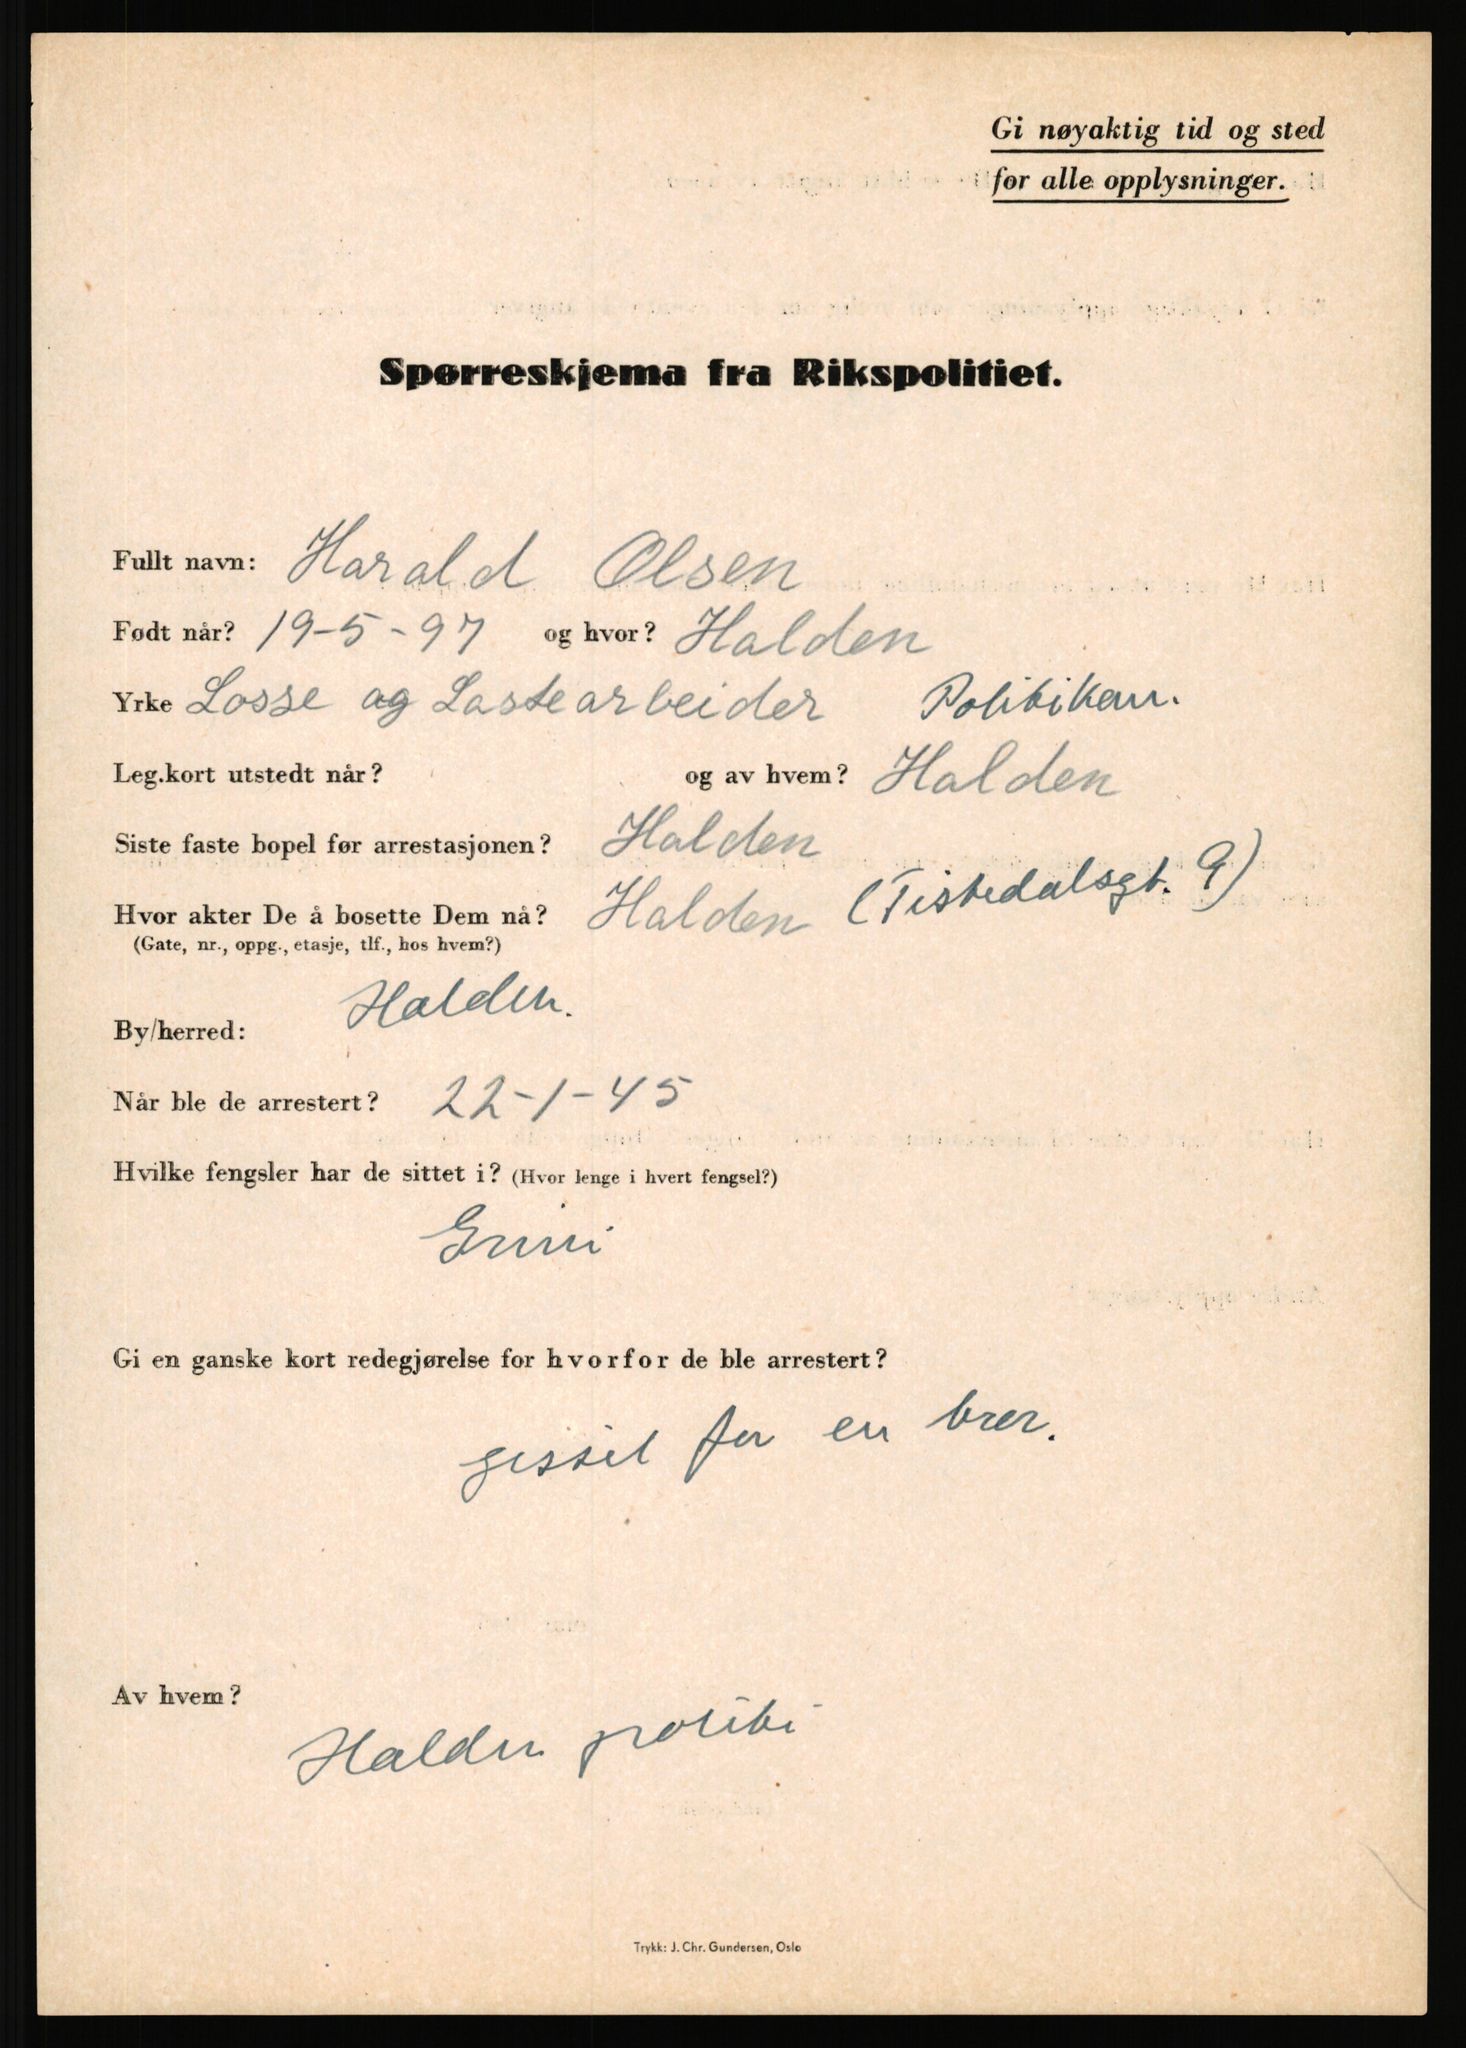 Gi nøyaktig tid og sted
for alle opplysninger.
Spørreskjema fra Rikspolitiet.
Fullt navn: Harald Olsen
Født når? 19-5-97 og hvor? Halden
Yrke Losse og Lastearbeider Politikam.
Leg.kort utstedt når? og av hvem? Halden
Siste faste bopel før arrestasjonen? Halden
Hvor akter De å bosette Dem nå? Halden (Tistedalsgt. 9)
(Gate, nr., oppg., etasje, tlf., hos hvem?)
By/herred: Halden.
Når ble de arrestert? 22-1-45
Hvilke fengsler har de sittet i? (Hvor lenge i hvert fengsel?)
Grini
Gi en ganske kort redegjørelse for hvorfor de ble arrestert?
gissel for en bror.
Av hvem?
Halden politi
Trykk: J. Chr. Gundersen, Oslo